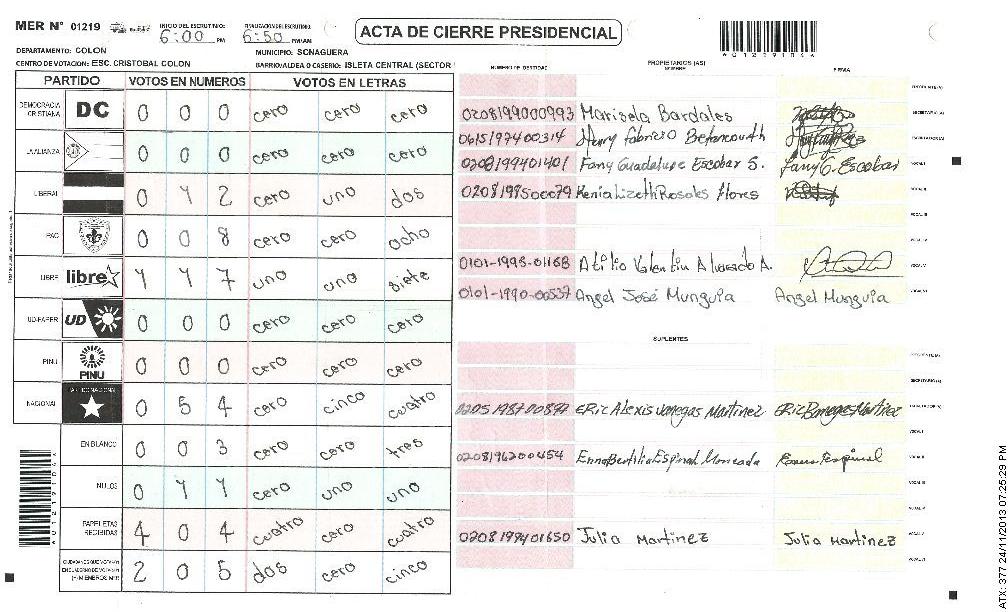 MER N° 01219 INICIO DEL ESCRUTINIO: 6:00 PM FINALIZACION DEL ESCRUTINIO: 6:50 PM/AM
ACTA DE CIERRE PRESIDENCIAL
DEPARTAMENTO: COLON MUNICIPIO: SONAGUERA
CENTRO DE VOTACION: ESC. CRISTOBAL COLON BARRIO/ALDEA O CASERIO: ISLETA CENTRAL (SECTOR
NUMERO DE IDENTIDAD PROPIETARIOS (AS) NOMBRE FIRMA
PARTIDO VOTOS EN NUMEROS VOTOS EN LETRAS
DEMOCRACIA CRISTIANA DC 0 0 0 cero cero cero
LA ALIANZA 0 0 0 cero cero cero
LIBERAL 0 1 2 cero uno dos
PAC 0 0 8 cero cero ocho
LIBRE libre 1 1 7 uno uno siete
UD-FAPER UD 0 0 0 cero cero cero
PINU PINU 0 0 0 cero cero cero
NACIONAL PARTIDO NACIONAL 0 5 4 cero cinco cuatro
EN BLANCO 0 0 3 cero cero tres
NULOS 0 1 1 cero uno uno
PAPELETAS RECIBIDAS 4 0 4 cuatro cero cuatro
2 0 5 dos cero cinco
0208199000993 Marisela Bardales
0615197400314 Henry Fabricio Betancourth
0208199401401 Fany Guadalupe Escobar S. Fany G. Escobar
0208199500079 Kenia Lizeth Rosales Flores
0101-1993-01168 Atilio Valentin Alvarado A.
0101-1990-00537 Angel José Munguia Angel Munguia
SUPLENTES
0205198700877 Eric Alexis Vanegas Martinez
0208196200454 Enna Bertilia Espinal Moncada
0208199401650 Julia Martinez Julia Martinez
ATX: 377 24/11/2013 07:25:29 PM